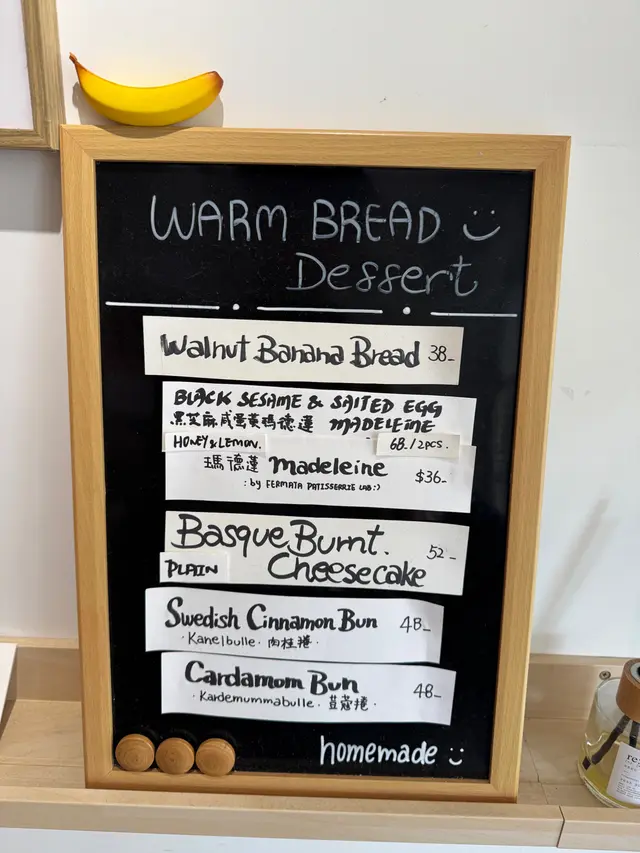 WARM BREAD
Dessert
Walnut Banana Bread 38-
BLACK SESAME & SALTED EGG
黑芝麻咸蛋黃瑪德蓮 MADELEINE
HONEY & LEMON. 68./2PCS.
瑪德蓮 Madeleine $36-
: by FERMATA PATISSERIE LAB :)
Basque Burnt. 52-
PLAIN Cheesecake
Swedish Cinnamon Bun 48-
· Kanelbulle · 肉桂捲 ·
Cardamom Bun 48-
· Kardemummabulle · 荳蔻捲 ·
homemade